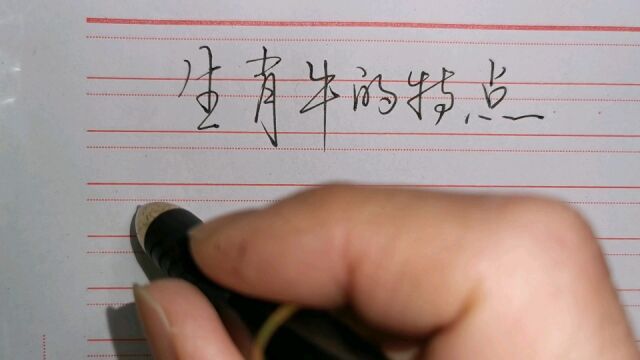 生肖牛的特点